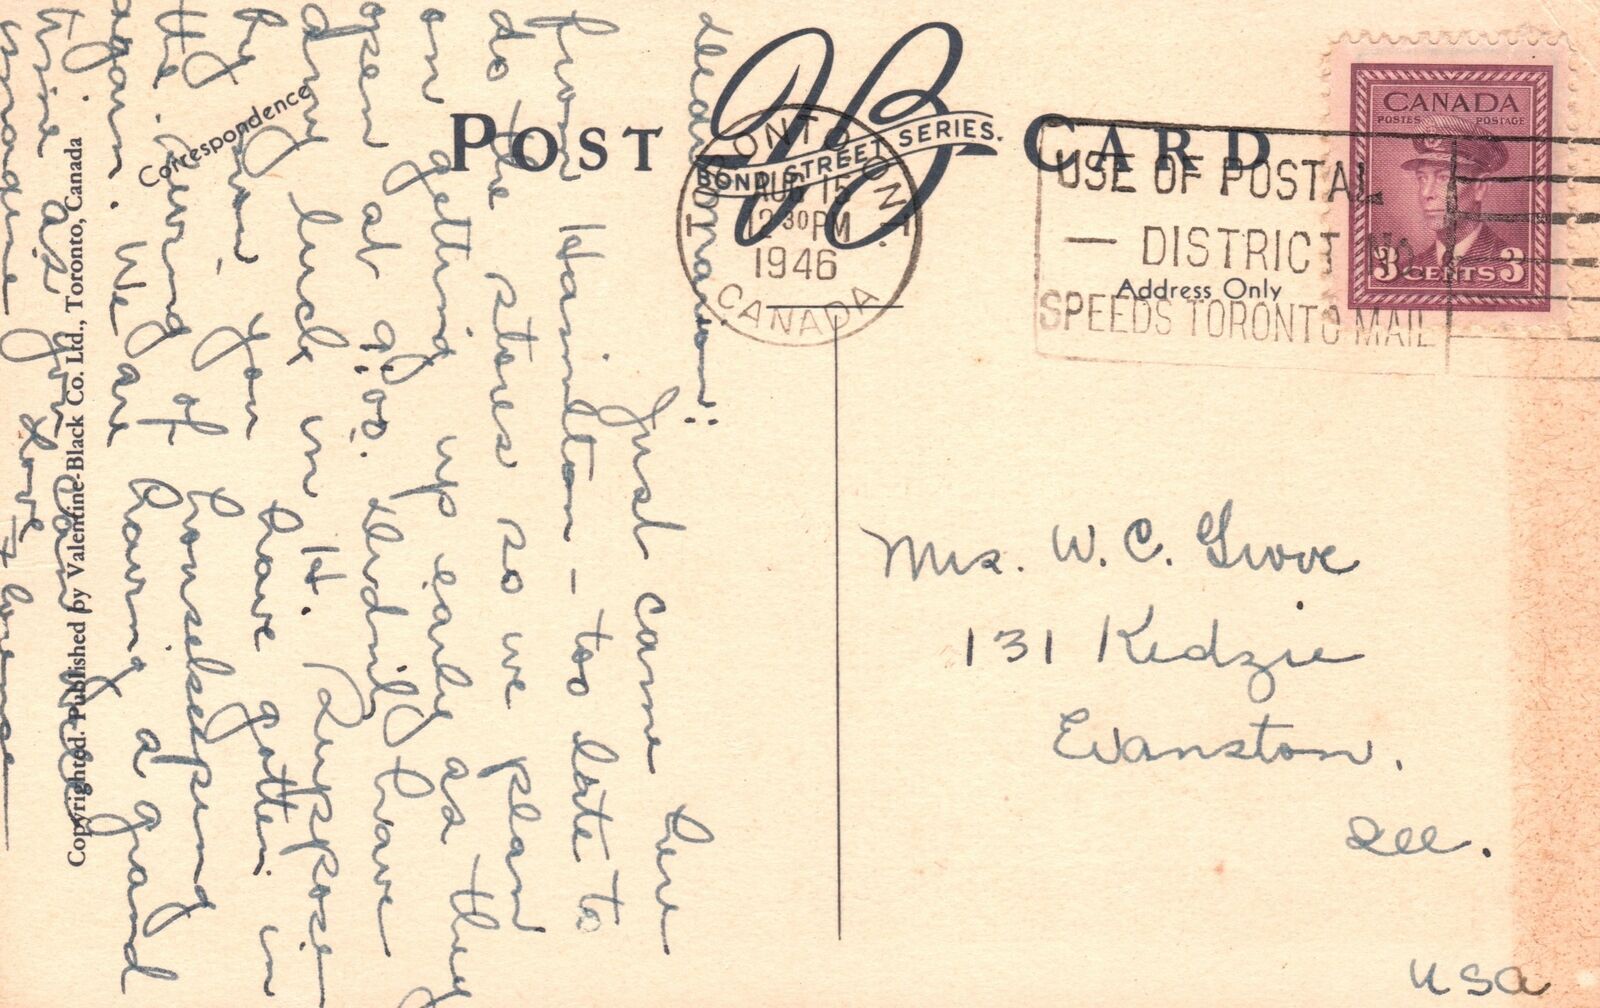 POST CARD
BOND STREET SERIES.
TORONTO, ONT.
AUG 15
12 30 PM
1946
CANADA
USE OF POSTAL
— DISTRICT No.
SPEEDS TORONTO MAIL
CANADA
POSTES POSTAGE
3 CENTS 3
Correspondence
Address Only
Copyrighted. Published by Valentine-Black Co. Ltd., Toronto, Canada
Just came here
from Hamilton – too late to
do the stores so we plan
on getting up early as they
open at 9:00. Didn't have
any luck in H. Suppose
by now you have gotten in
the swing of housekeeping
again. We are having a grand
time as you can well
imagine Love
Mrs. W. C. Grove
131 Kedzie
Evanston.
Ill.
USA